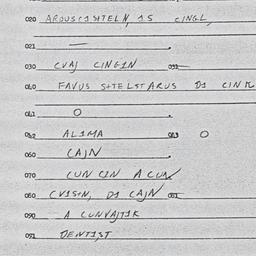 020 ARDUSCISHTELN, 15 CINGL,
021 — .
030 CVAJ CINGIN 031 —
040 FAVUS SHTELSTARUS DI CINM
041 O .
042 ALIMA 043 O
060 CAJN .
070 CUN CIN A CUN
080 CVISIN, DI CAJN 081
090 A CUNVAJTIK
091 DENTIST